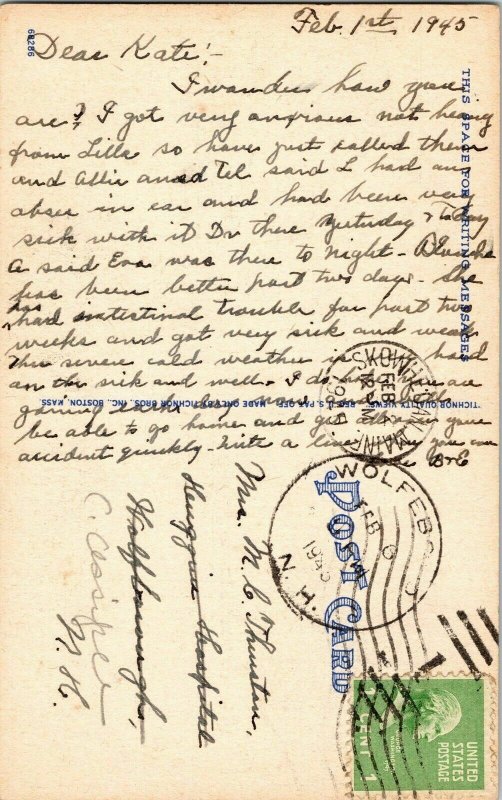 Feb. 1st, 1945
60286
Dear Kate:-
I wonder how you
are? I got very anxious not hearing
from Lilla so have just called them
and Allie ansd Tel said L had an
absess in ear and had been very
sick with it Dr there yesterday & today
A said Eva was there to night -
has been better past two days. She
has had intestinal trouble for past two
weeks and got very sick and weak
this severe cold weather is hard
on the sick and well - I do hope you are
gaining each day now and
be able to go home and get over your
accident quickly. Write a line when you can
B & E
THIS SPACE FOR WRITING MESSAGES
"TICHNOR QUALITY VIEWS," REG. U. S. PAT. OFF. MADE ONLY BY TICHNOR BROS., INC., BOSTON, MASS.
POST CARD
Mrs. M. C. Thurston,
Huggins Hospital
Wolfborough,
N. H.
C. Ossipee
SKOWHEGAN
FEB
MAINE
WOLFEBORO
FEB 6
1945
N. H.
UNITED
STATES
POSTAGE
1 CENT 1